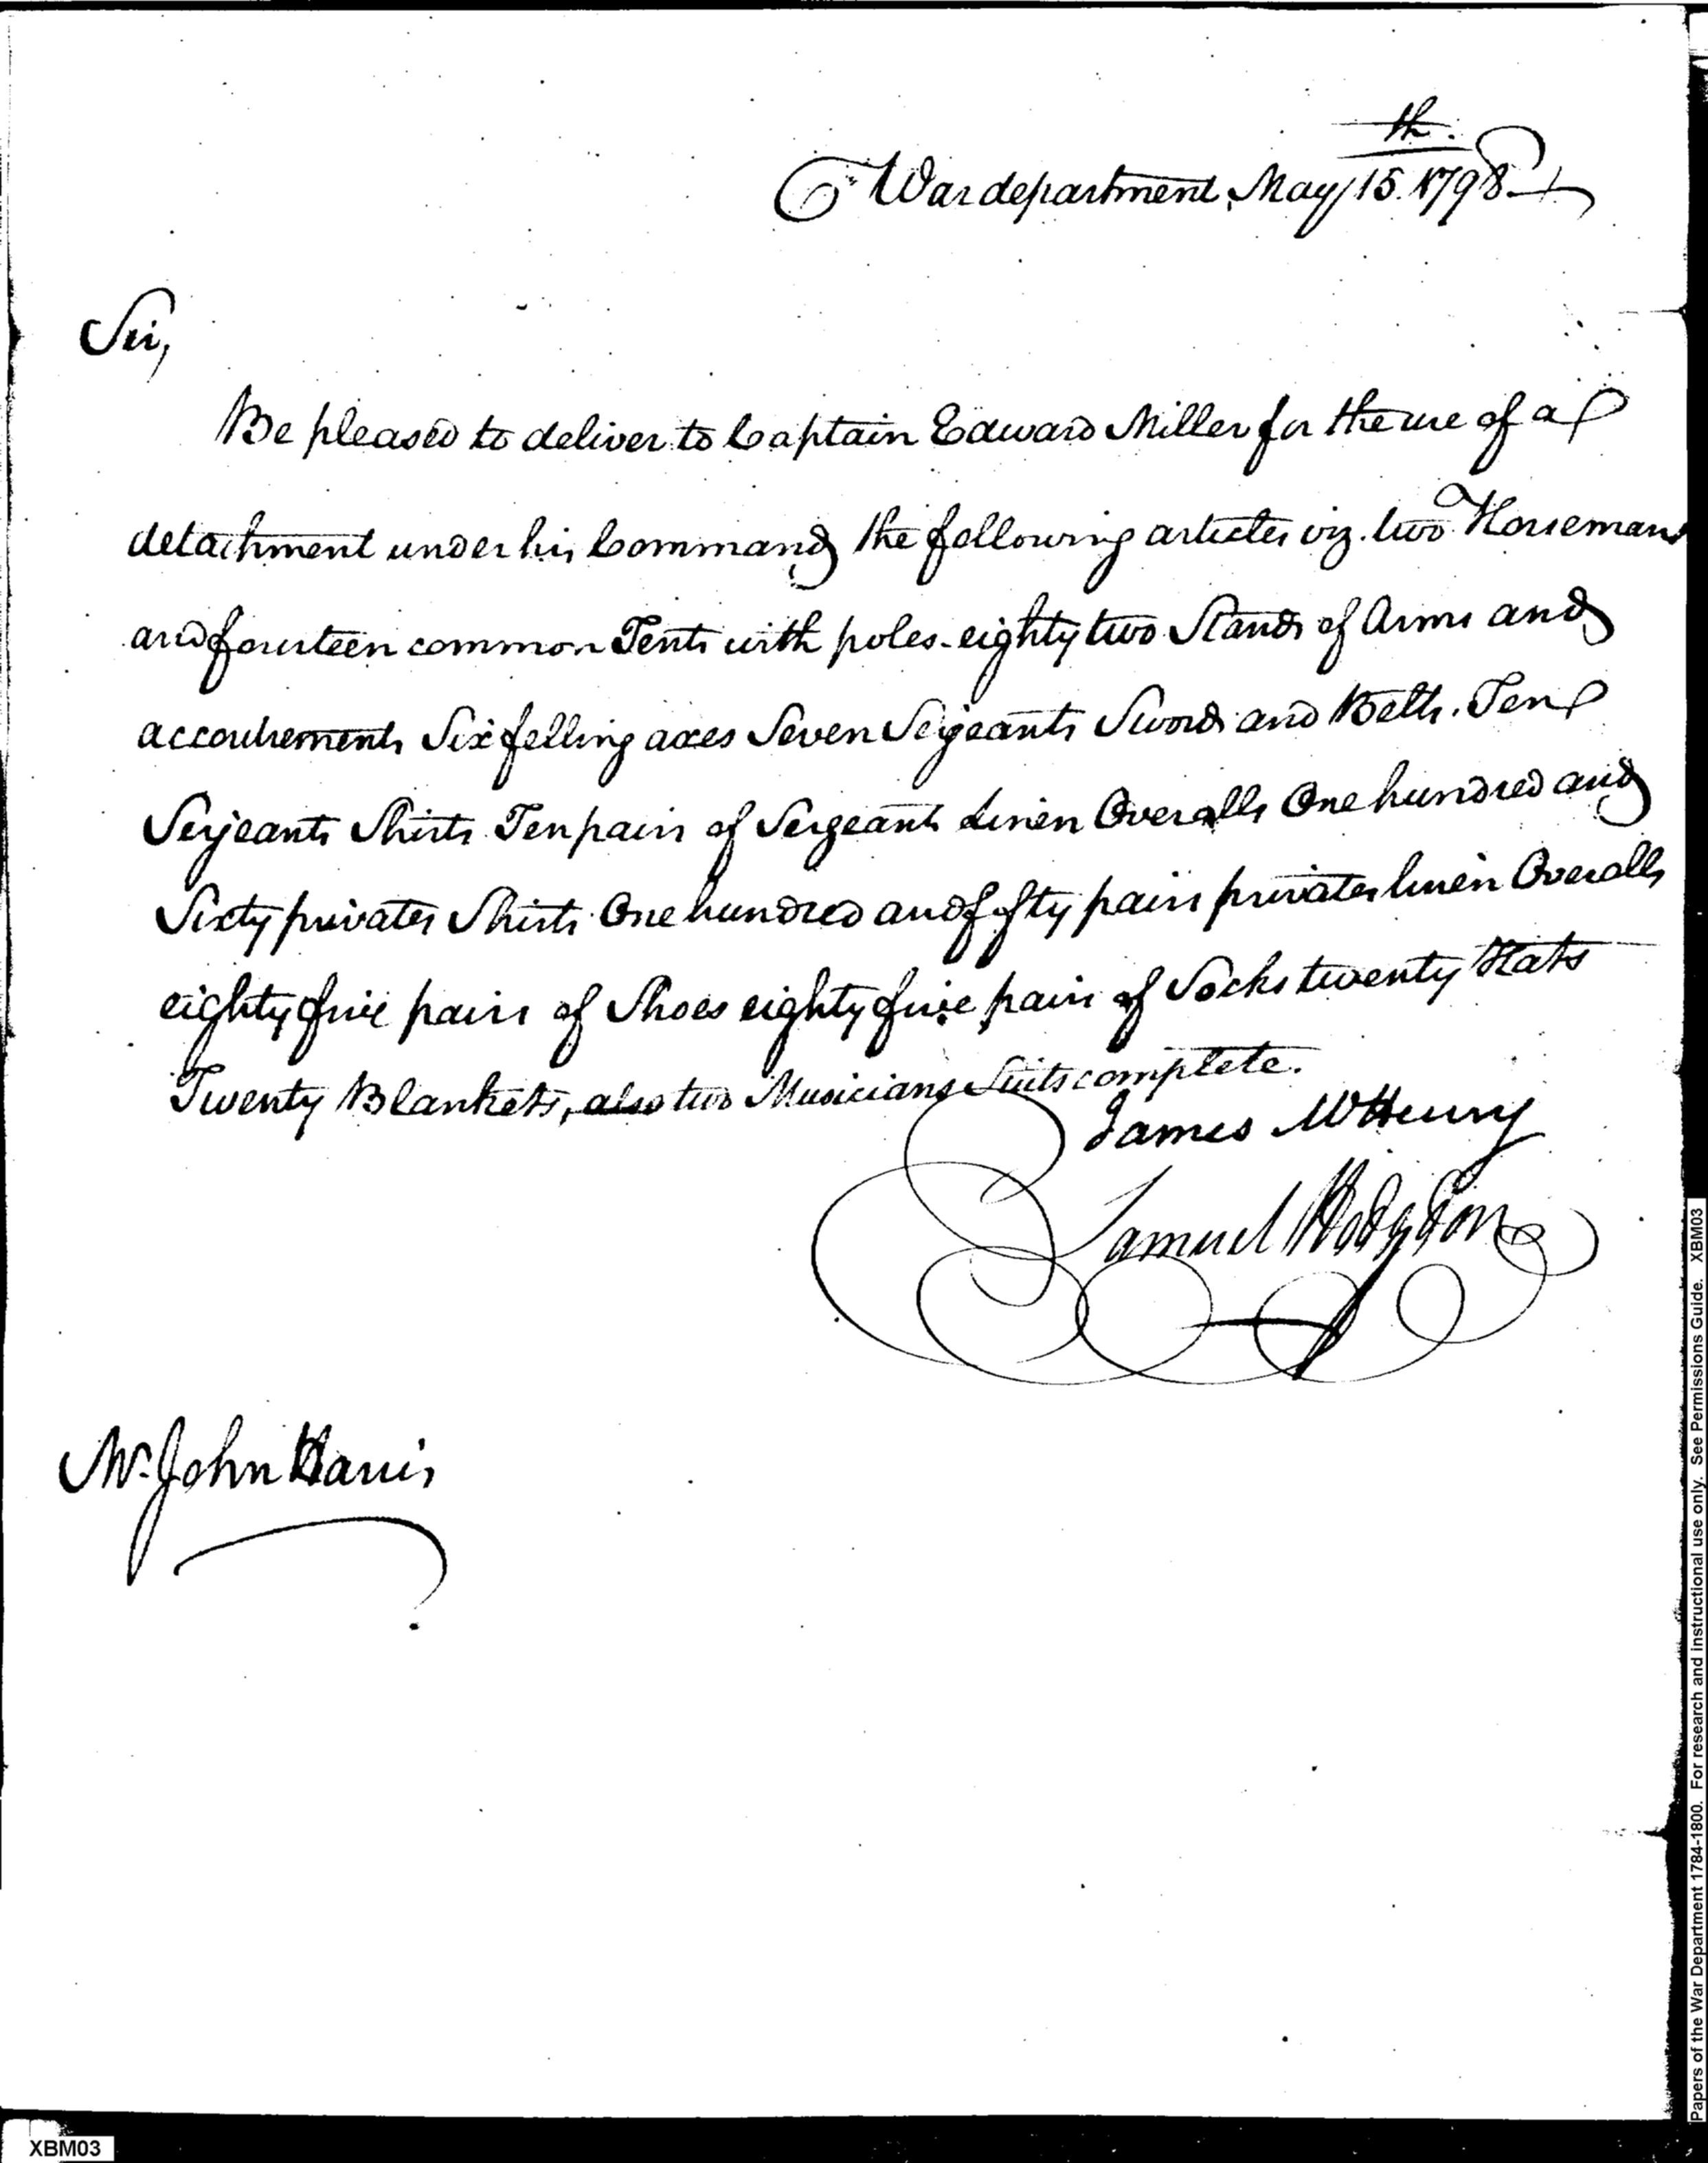 War department, May 15th. 1798
Sir,
Be pleased to deliver to Captain Edward Miller for the use of a
detachment under his Command the following articles viz. two Horsemans
and fourteen common Tents with poles. eighty two Stands of Arms and
accoutrements Six felling axes Seven Sergeants Swords and Belts. Ten
Serjeants Shirts Ten pairs of Sergeants Linen Overalls One hundred and
Sixty privates Shirts One hundred and fifty pairs privates linen Overalls
eighty five pairs of Shoes eighty five pairs of Socks twenty Hats
Twenty Blankets, also two Musicians Suits complete.
James McHenry
Samuel Hodgdon
Mr. John Harris
Papers of the War Department 1784-1800. For research and instructional use only. See Permissions Guide. XBM03
XBM03